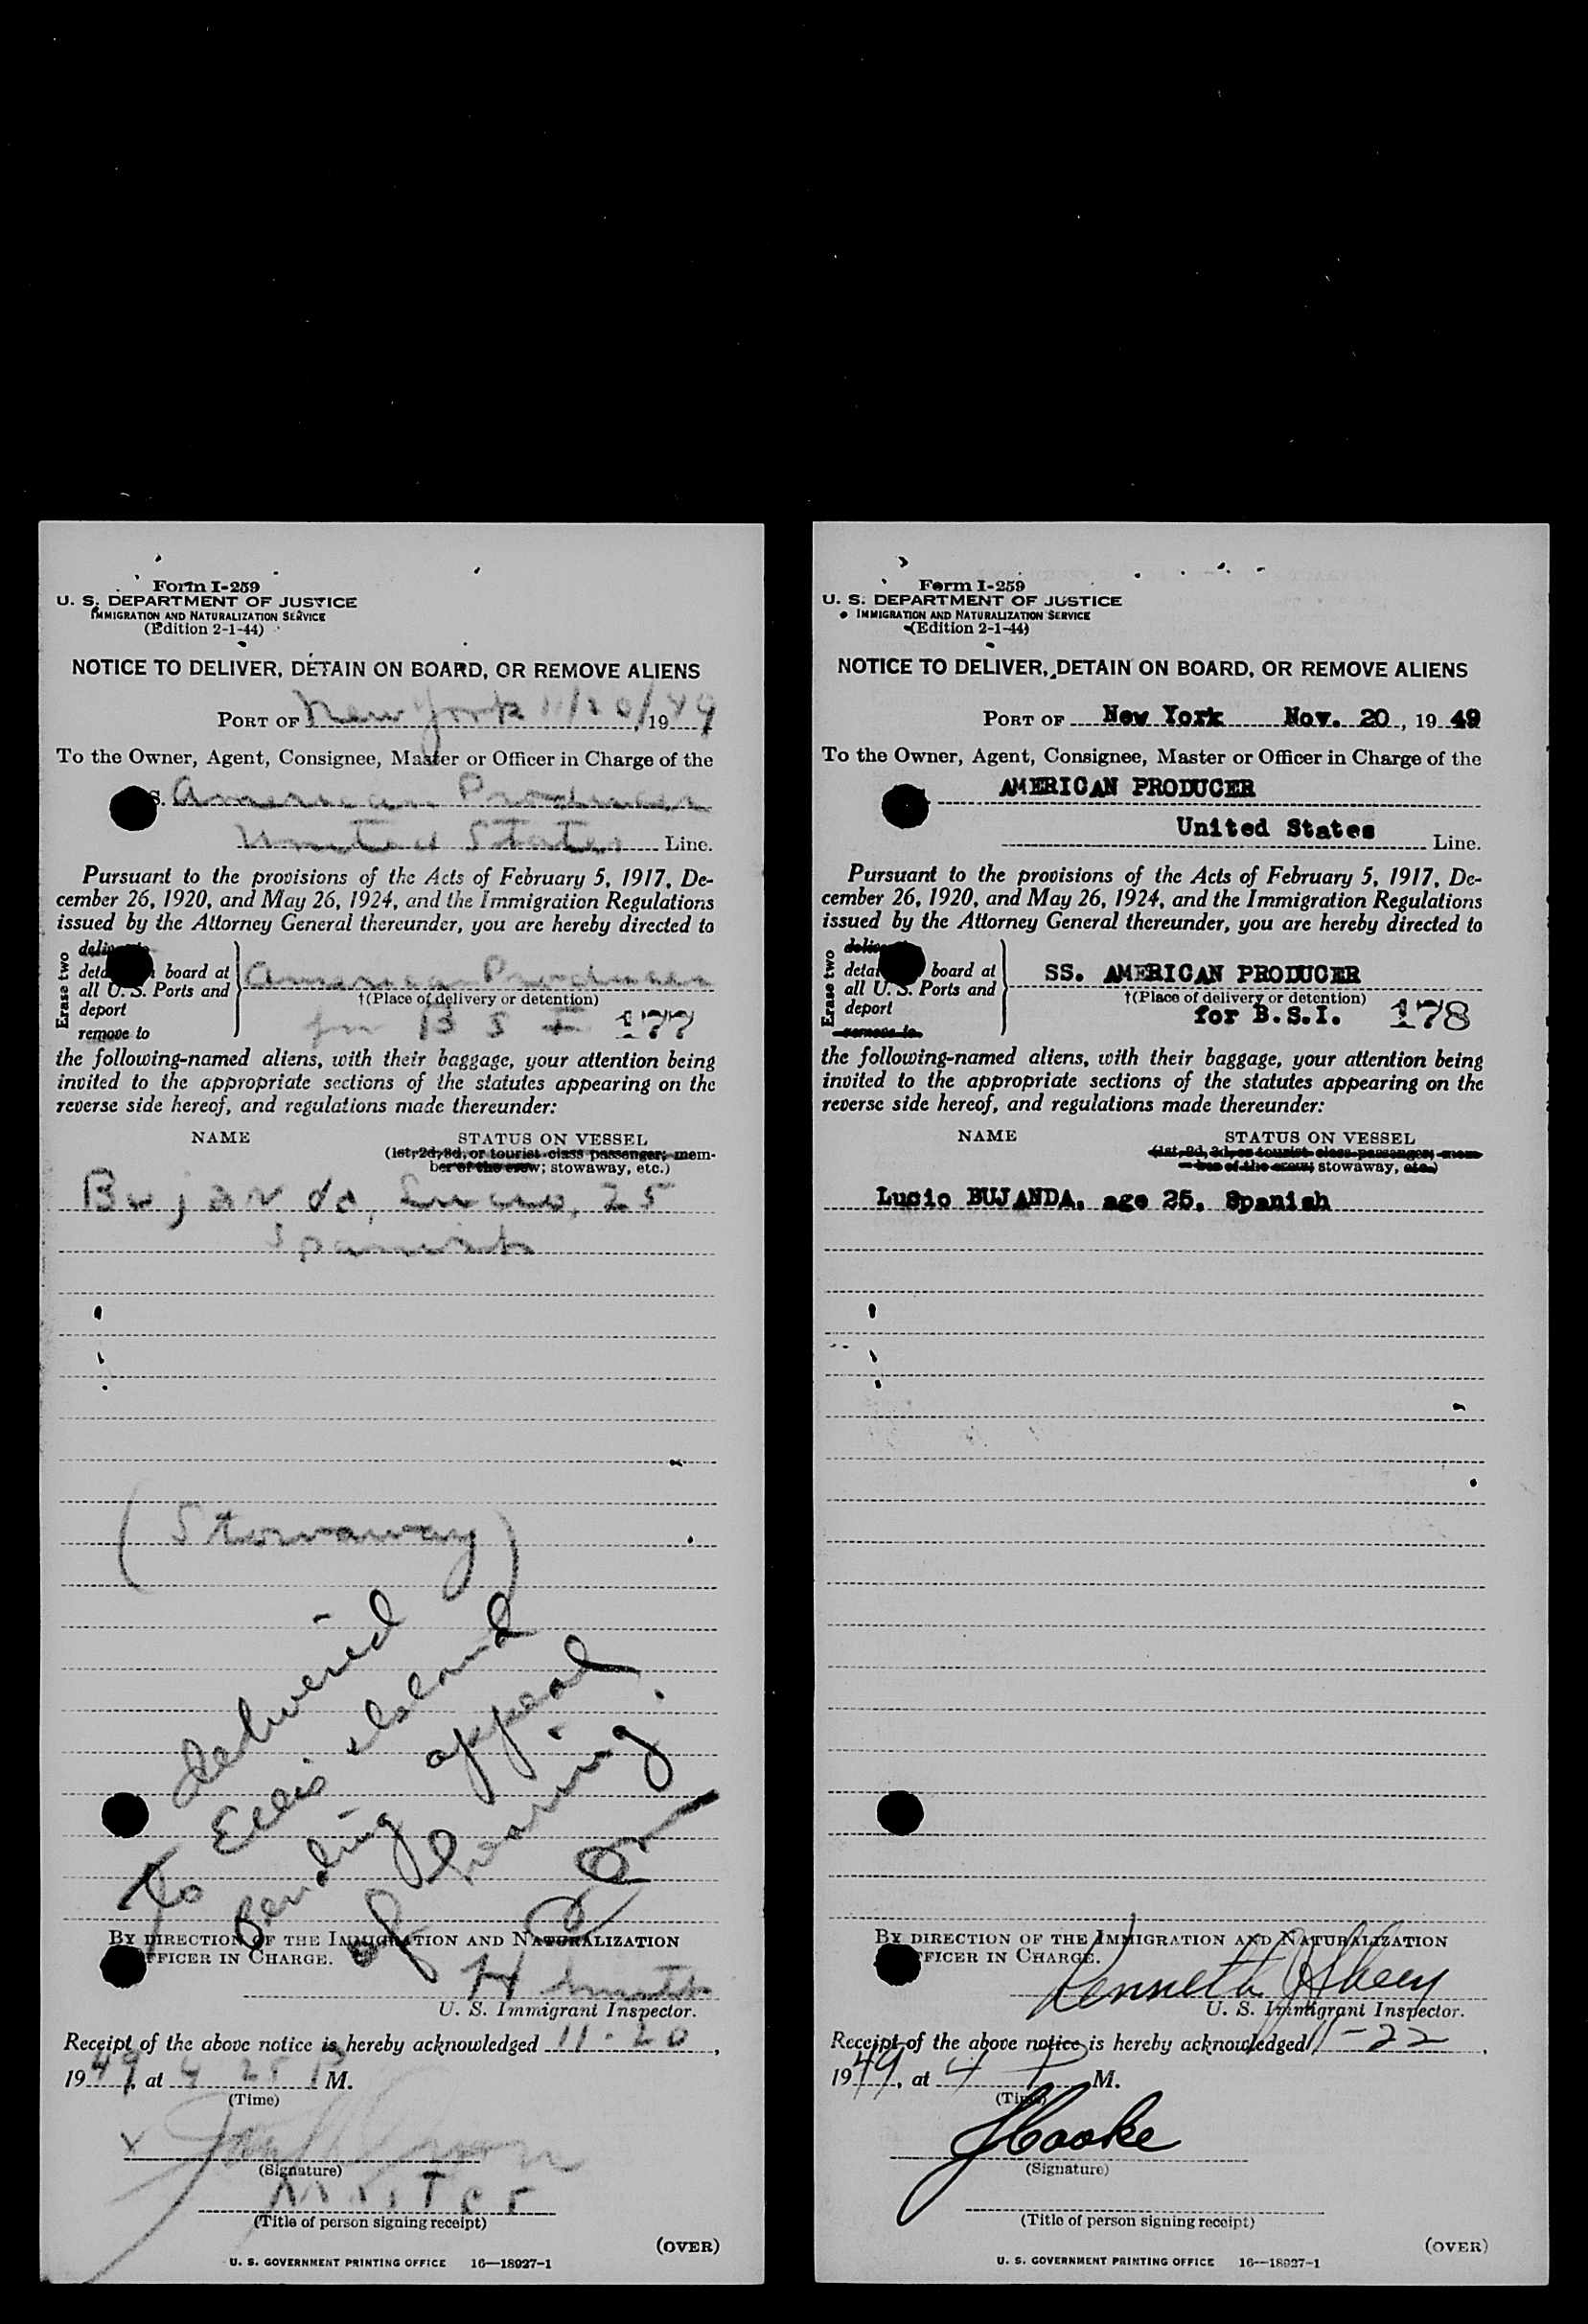 Form I-259
U. S. DEPARTMENT OF JUSTICE
IMMIGRATION AND NATURALIZATION SERVICE
(Edition 2-1-44)
NOTICE TO DELIVER, DETAIN ON BOARD, OR REMOVE ALIENS
PORT OF New York 11/20/, 1949
To the Owner, Agent, Consignee, Master or Officer in Charge of the
S. American Producer
United States Line.
Pursuant to the provisions of the Acts of February 5, 1917, De-
cember 26, 1920, and May 26, 1924, and the Immigration Regulations
issued by the Attorney General thereunder, you are hereby directed to
Erase two
board at
all U. S. Ports and
deport
remove to
American Producer
†(Place of delivery or detention)
for B S I 177
the following-named aliens, with their baggage, your attention being
invited to the appropriate sections of the statutes appearing on the
reverse side hereof, and regulations made thereunder:
NAME STATUS ON VESSEL
(1st, 2d, 3d, or tourist class passenger; mem-
ber of the crew; stowaway, etc.)
Bujanda, Lucio, 25
Spanish
(Stowaway)
Delivered
To Ellis Island
Pending appeal
of hearing.
BY DIRECTION OF THE IMMIGRATION AND NATURALIZATION
FFICER IN CHARGE.
H Smith
U. S. Immigrant Inspector.
Receipt of the above notice is hereby acknowledged 11-20,
1949, at 4 25 P M.
(Time)
X
(Signature)
MASTER
(Title of person signing receipt)
(OVER)
U. S. GOVERNMENT PRINTING OFFICE 16—18927-1
Form I-259
U. S. DEPARTMENT OF JUSTICE
IMMIGRATION AND NATURALIZATION SERVICE
(Edition 2-1-44)
NOTICE TO DELIVER, DETAIN ON BOARD, OR REMOVE ALIENS
PORT OF New York Nov. 20, 1949
To the Owner, Agent, Consignee, Master or Officer in Charge of the
AMERICAN PRODUCER
United States Line.
Pursuant to the provisions of the Acts of February 5, 1917, De-
cember 26, 1920, and May 26, 1924, and the Immigration Regulations
issued by the Attorney General thereunder, you are hereby directed to
Erase two
board at
all U. S. Ports and
deport
remove to
SS. AMERICAN PRODUCER
†(Place of delivery or detention)
for B.S.I. 178
the following-named aliens, with their baggage, your attention being
invited to the appropriate sections of the statutes appearing on the
reverse side hereof, and regulations made thereunder:
NAME STATUS ON VESSEL
(1st, 2d, 3d, or tourist class passenger; mem-
ber of the crew; stowaway, etc.)
Lucio BUJANDA, age 25, Spanish
BY DIRECTION OF THE IMMIGRATION AND NATURALIZATION
FFICER IN CHARGE.
Kenneth
U. S. Immigrant Inspector.
Receipt of the above notice is hereby acknowledged 11-22,
1949, at 4 P M.
(Time)
J Cooke
(Signature)
(Title of person signing receipt)
(OVER)
U. S. GOVERNMENT PRINTING OFFICE 16—18927-1